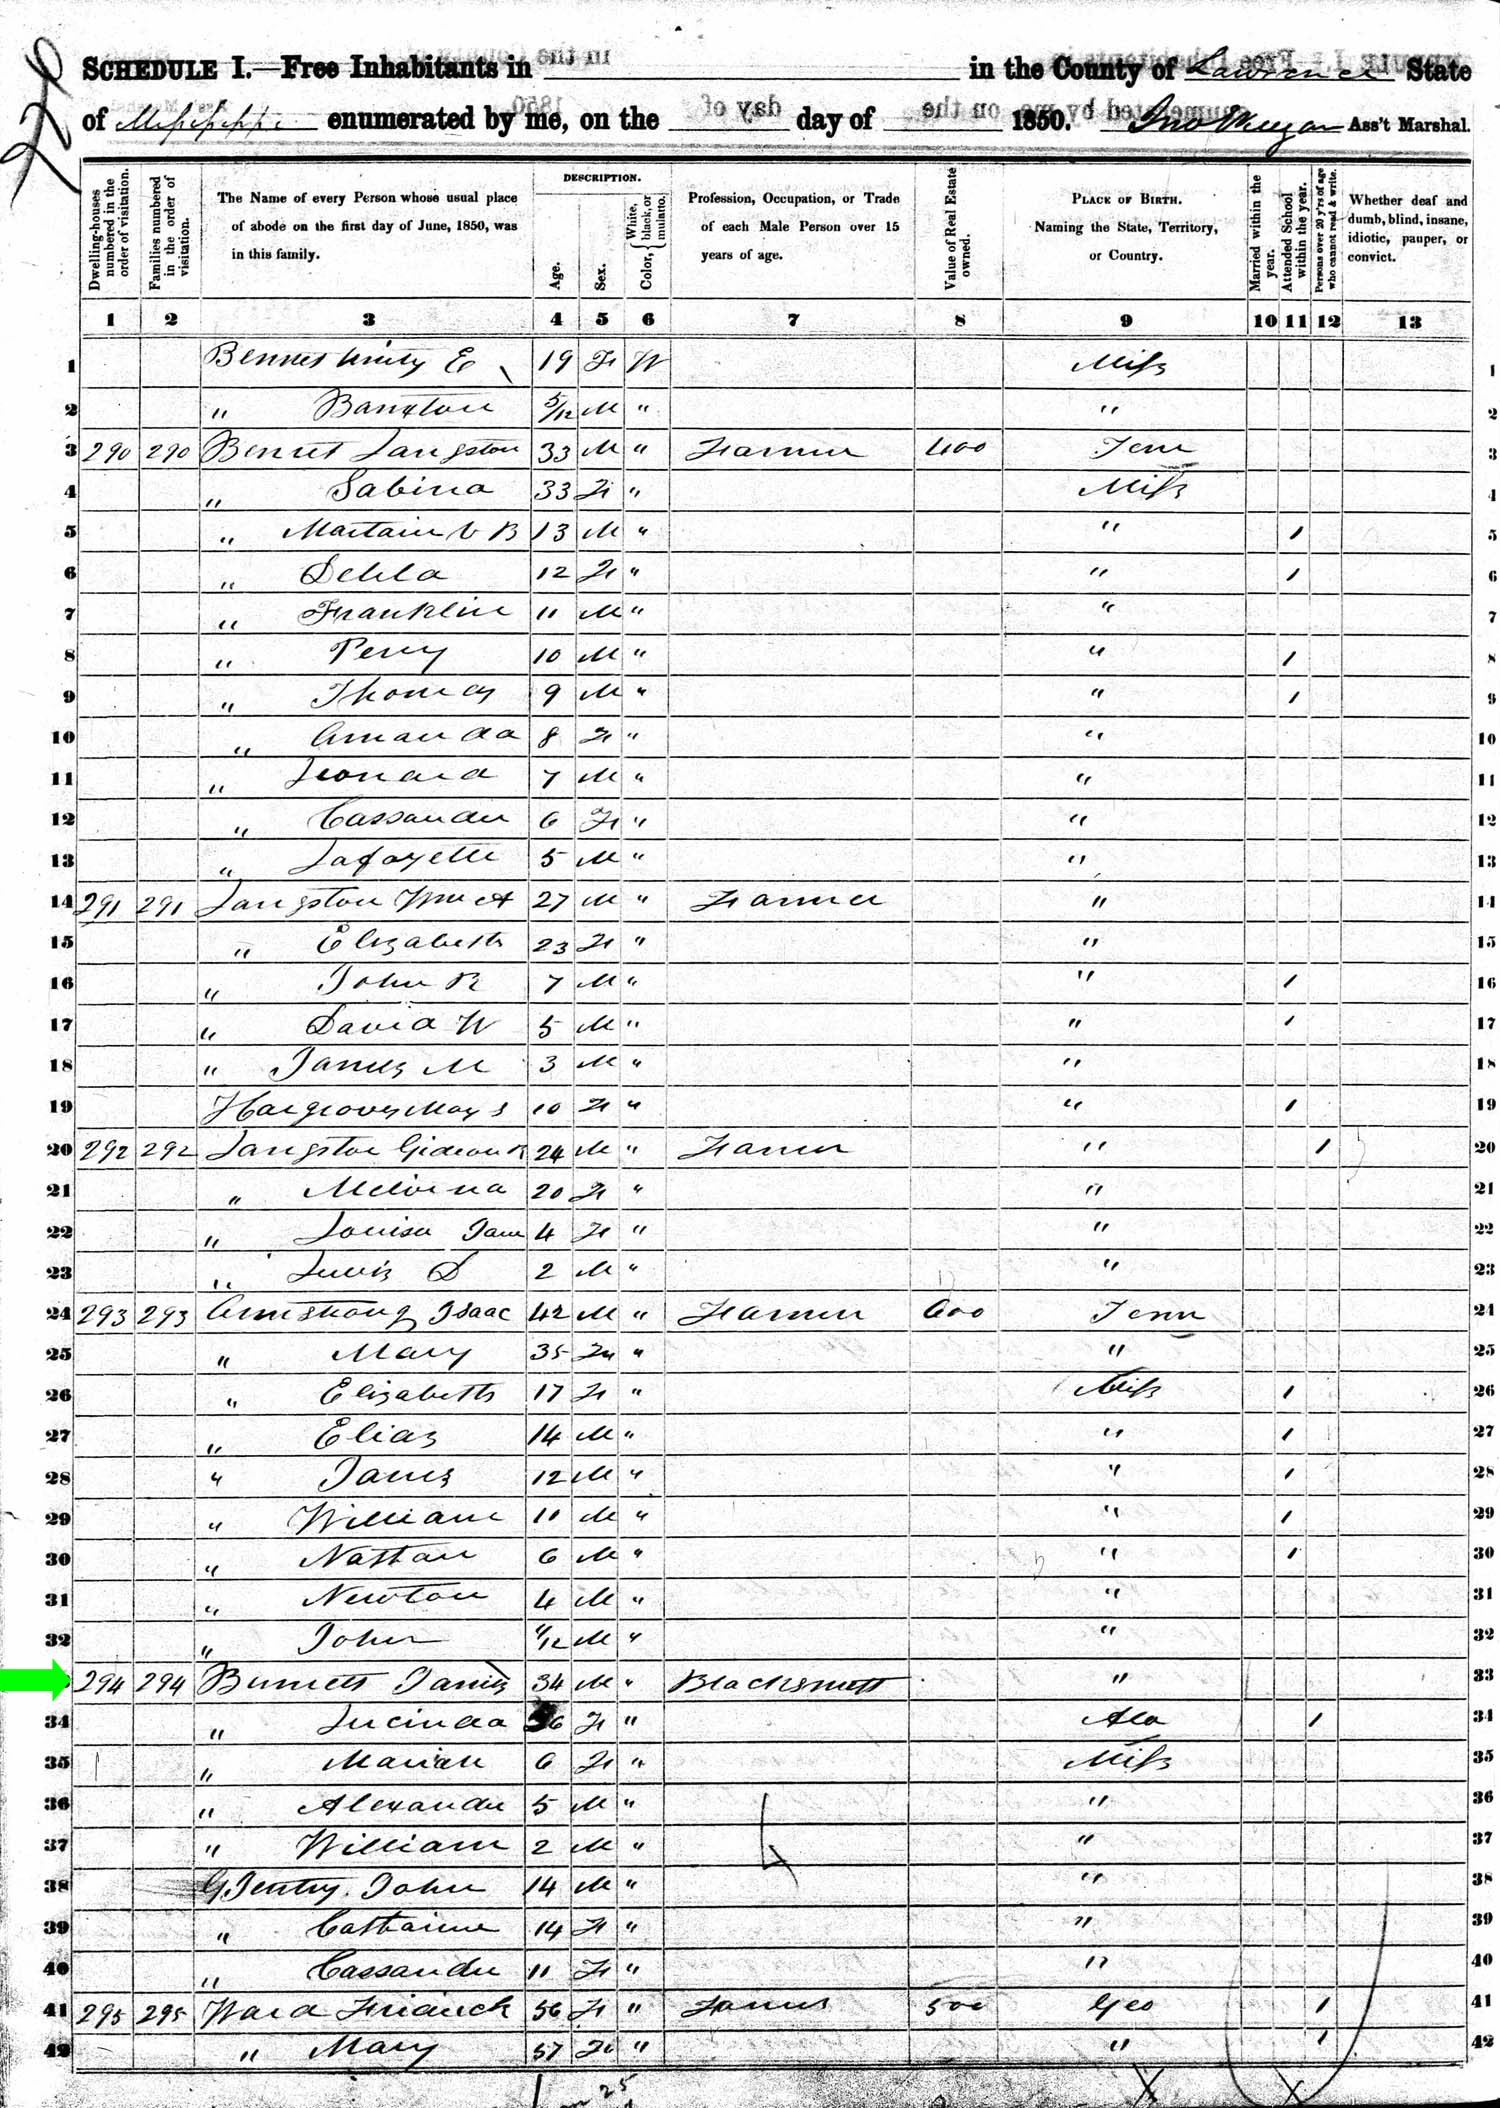 SCHEDULE I.—Free Inhabitants in in the County of Lawrence State
of Mississippi enumerated by me, on the day of 1850. Jno Ass't Marshal.
Dwelling-houses numbered in the order of visitation.
Families numbered in the order of visitation.
The Name of every Person whose usual place of abode on the first day of June, 1850, was in this family.
DESCRIPTION.
Age.
Sex.
Color, { White, black, or mulatto.
Profession, Occupation, or Trade of each Male Person over 15 years of age.
Value of Real Estate owned.
PLACE OF BIRTH. Naming the State, Territory, or Country.
Married within the year.
Attended School within the year.
Persons over 20 y'rs of age who cannot read & write.
Whether deaf and dumb, blind, insane, idiotic, pauper, or convict.
1 2 3 4 5 6 7 8 9 10 11 12 13
1 Bennet Unity E 19 F W Miss 1
2 " 5/12 M " " 2
3 290 290 Bennet Langston 33 M " Farmer 400 Tenn 3
4 " Sabina 33 F " Miss 4
5 " Martain V B 13 M " " / 5
6 " Delila 12 F " " / 6
7 " Franklin 11 M " " 7
8 " Perry 10 M " " / 8
9 " Thomas 9 M " " / 9
10 " Amanda 8 F " " 10
11 " Leonard 7 M " " 11
12 " Cassander 6 F " " 12
13 " Lafayette 5 M " " 13
14 291 291 Langston Wm A 27 M " Farmer " 14
15 " Elizabeth 23 F " " 15
16 " John R 7 M " " / 16
17 " David W 5 M " " / 17
18 " James M 3 M " " 18
19 Hargroves Mary S 10 F " " / 19
20 292 292 Langston Gideon R 24 M " Farmer " / 20
21 " Melvina 20 F " " 21
22 " Louisa Jane 4 F " " 22
23 " Lewis D 2 M " " 23
24 293 293 Armstrong Isaac 42 M " Farmer 600 Tenn 24
25 " Mary 35 F " " 25
26 " Elizabeth 17 F " Miss / 26
27 " Elias 14 M " " / 27
28 " James 12 M " " / 28
29 " William 10 M " " / 29
30 " Nathan 6 M " " / 30
31 " Newton 4 M " " 31
32 " John /12 M " " 32
294 294 Burnett James 34 M " Blacksmith " 33
34 " Lucinda 36 F " Ala / 34
35 " Mariah 6 F " Miss 35
36 " Alexander 5 M " " 36
37 " William 2 M " " 37
38 Gentry John 14 M " " 38
39 " Catharine 14 F " " 39
40 " Cassander 11 F " " 40
41 295 295 Ward 56 F " Farmer 500 Geo / 41
42 " Mary 57 F " " / 42